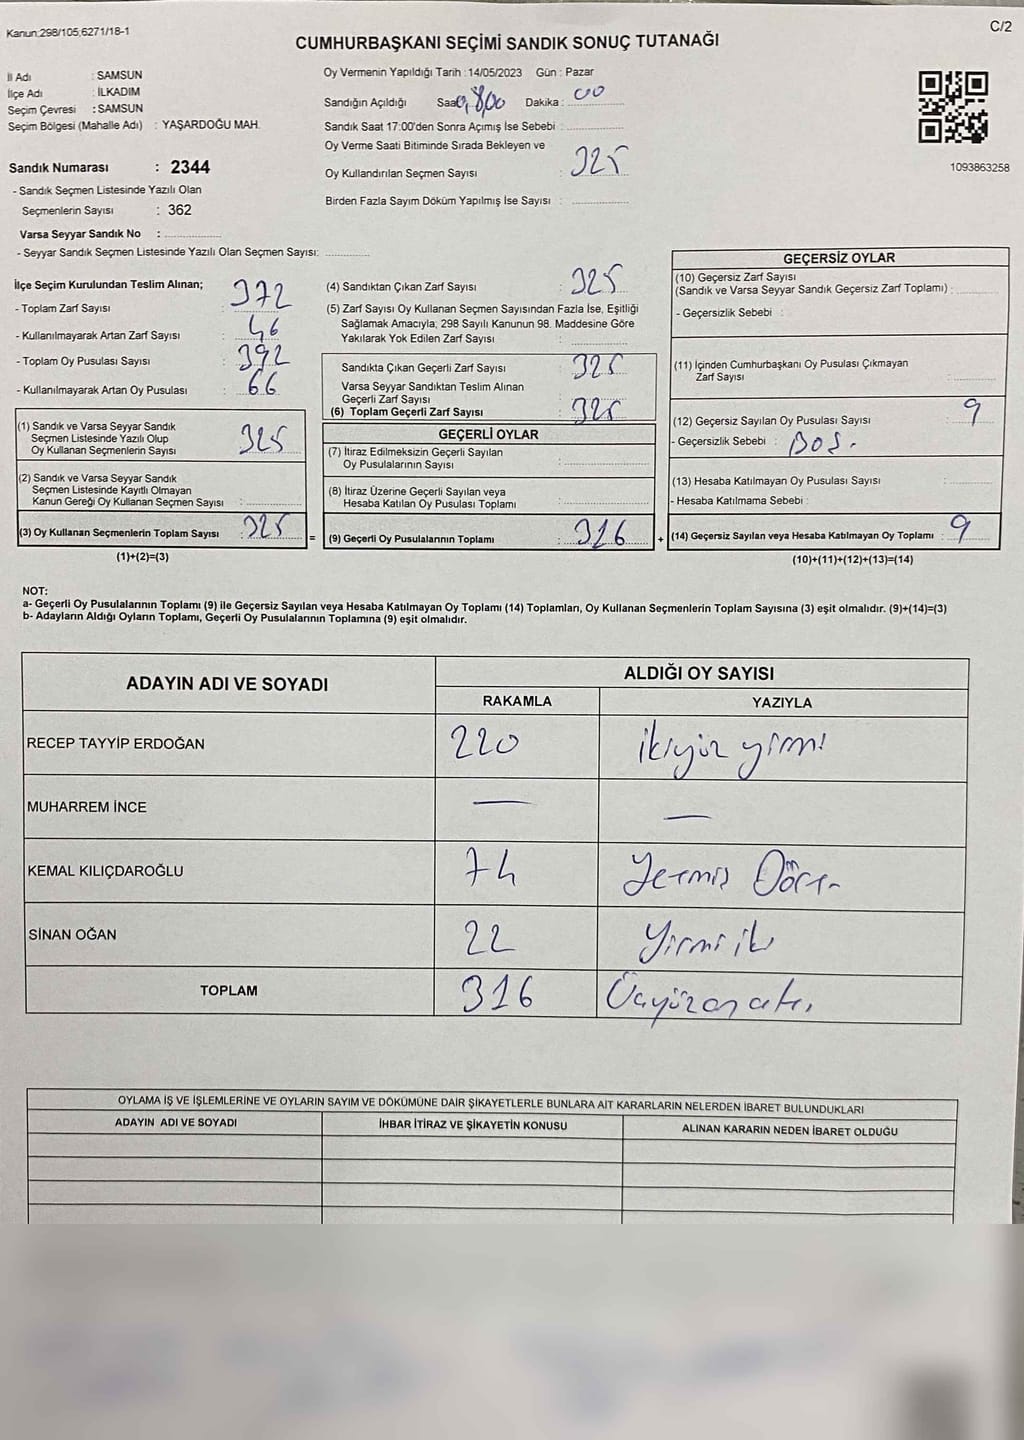 Kanun:298/105;6271/18-1
C/2
CUMHURBAŞKANI SEÇİMİ SANDIK SONUÇ TUTANAĞI
İl Adı : SAMSUN
İlçe Adı : İLKADIM
Seçim Çevresi : SAMSUN
Seçim Bölgesi (Mahalle Adı) : YAŞARDOĞU MAH.
Sandık Numarası : 2344
- Sandık Seçmen Listesinde Yazılı Olan
Seçmenlerin Sayısı : 362
Varsa Seyyar Sandık No :
- Seyyar Sandık Seçmen Listesinde Yazılı Olan Seçmen Sayısı:
Oy Vermenin Yapıldığı Tarih : 14/05/2023 Gün : Pazar
Sandığın Açıldığı Saat 0,800 Dakika : 00
Sandık Saat 17:00'den Sonra Açımış İse Sebebi :
Oy Verme Saati Bitiminde Sırada Bekleyen ve
Oy Kullandırılan Seçmen Sayısı : 325
Birden Fazla Sayım Döküm Yapılmış İse Sayısı :
1093863258
İlçe Seçim Kurulundan Teslim Alınan;
- Toplam Zarf Sayısı : 372
- Kullanılmayarak Artan Zarf Sayısı : 46
- Toplam Oy Pusulası Sayısı : 392
- Kullanılmayarak Artan Oy Pusulası : 66
(1) Sandık ve Varsa Seyyar Sandık
Seçmen Listesinde Yazılı Olup
Oy Kullanan Seçmenlerin Sayısı : 325
(2) Sandık ve Varsa Seyyar Sandık
Seçmen Listesinde Kayıtlı Olmayan
Kanun Gereği Oy Kullanan Seçmen Sayısı :
(3) Oy Kullanan Seçmenlerin Toplam Sayısı : 325
(1)+(2)=(3)
(4) Sandıktan Çıkan Zarf Sayısı : 325
(5) Zarf Sayısı Oy Kullanan Seçmen Sayısından Fazla İse, Eşitliği
Sağlamak Amacıyla; 298 Sayılı Kanunun 98. Maddesine Göre
Yakılarak Yok Edilen Zarf Sayısı :
Sandıkta Çıkan Geçerli Zarf Sayısı : 325
Varsa Seyyar Sandıktan Teslim Alınan
Geçerli Zarf Sayısı :
(6) Toplam Geçerli Zarf Sayısı : 325
GEÇERLİ OYLAR
(7) İtiraz Edilmeksizin Geçerli Sayılan
Oy Pusulalarının Sayısı :
(8) İtiraz Üzerine Geçerli Sayılan veya
Hesaba Katılan Oy Pusulası Toplamı :
= (9) Geçerli Oy Pusulalarının Toplamı : 316
GEÇERSİZ OYLAR
(10) Geçersiz Zarf Sayısı
(Sandık ve Varsa Seyyar Sandık Geçersiz Zarf Toplamı) :
- Geçersizlik Sebebi :
(11) İçinden Cumhurbaşkanı Oy Pusulası Çıkmayan
Zarf Sayısı :
(12) Geçersiz Sayılan Oy Pusulası Sayısı : 9
- Geçersizlik Sebebi : BOŞ.
(13) Hesaba Katılmayan Oy Pusulası Sayısı :
- Hesaba Katılmama Sebebi :
+ (14) Geçersiz Sayılan veya Hesaba Katılmayan Oy Toplamı : 9
(10)+(11)+(12)+(13)=(14)
NOT:
a- Geçerli Oy Pusulalarının Toplamı (9) ile Geçersiz Sayılan veya Hesaba Katılmayan Oy Toplamı (14) Toplamları, Oy Kullanan Seçmenlerin Toplam Sayısına (3) eşit olmalıdır. (9)+(14)=(3)
b- Adayların Aldığı Oyların Toplamı, Geçerli Oy Pusulalarının Toplamına (9) eşit olmalıdır.
ADAYIN ADI VE SOYADI ALDIĞI OY SAYISI
RAKAMLA YAZIYLA
RECEP TAYYİP ERDOĞAN 220 ikiyüz yirmi
MUHARREM İNCE — —
KEMAL KILIÇDAROĞLU 74 Yetmiş Dört
SİNAN OĞAN 22 Yirmi iki
TOPLAM 316 Üçyüzonaltı
OYLAMA İŞ VE İŞLEMLERİNE VE OYLARIN SAYIM VE DÖKÜMÜNE DAİR ŞİKAYETLERLE BUNLARA AİT KARARLARIN NELERDEN İBARET BULUNDUKLARI
ADAYIN ADI VE SOYADI İHBAR İTİRAZ VE ŞİKAYETİN KONUSU ALINAN KARARIN NEDEN İBARET OLDUĞU